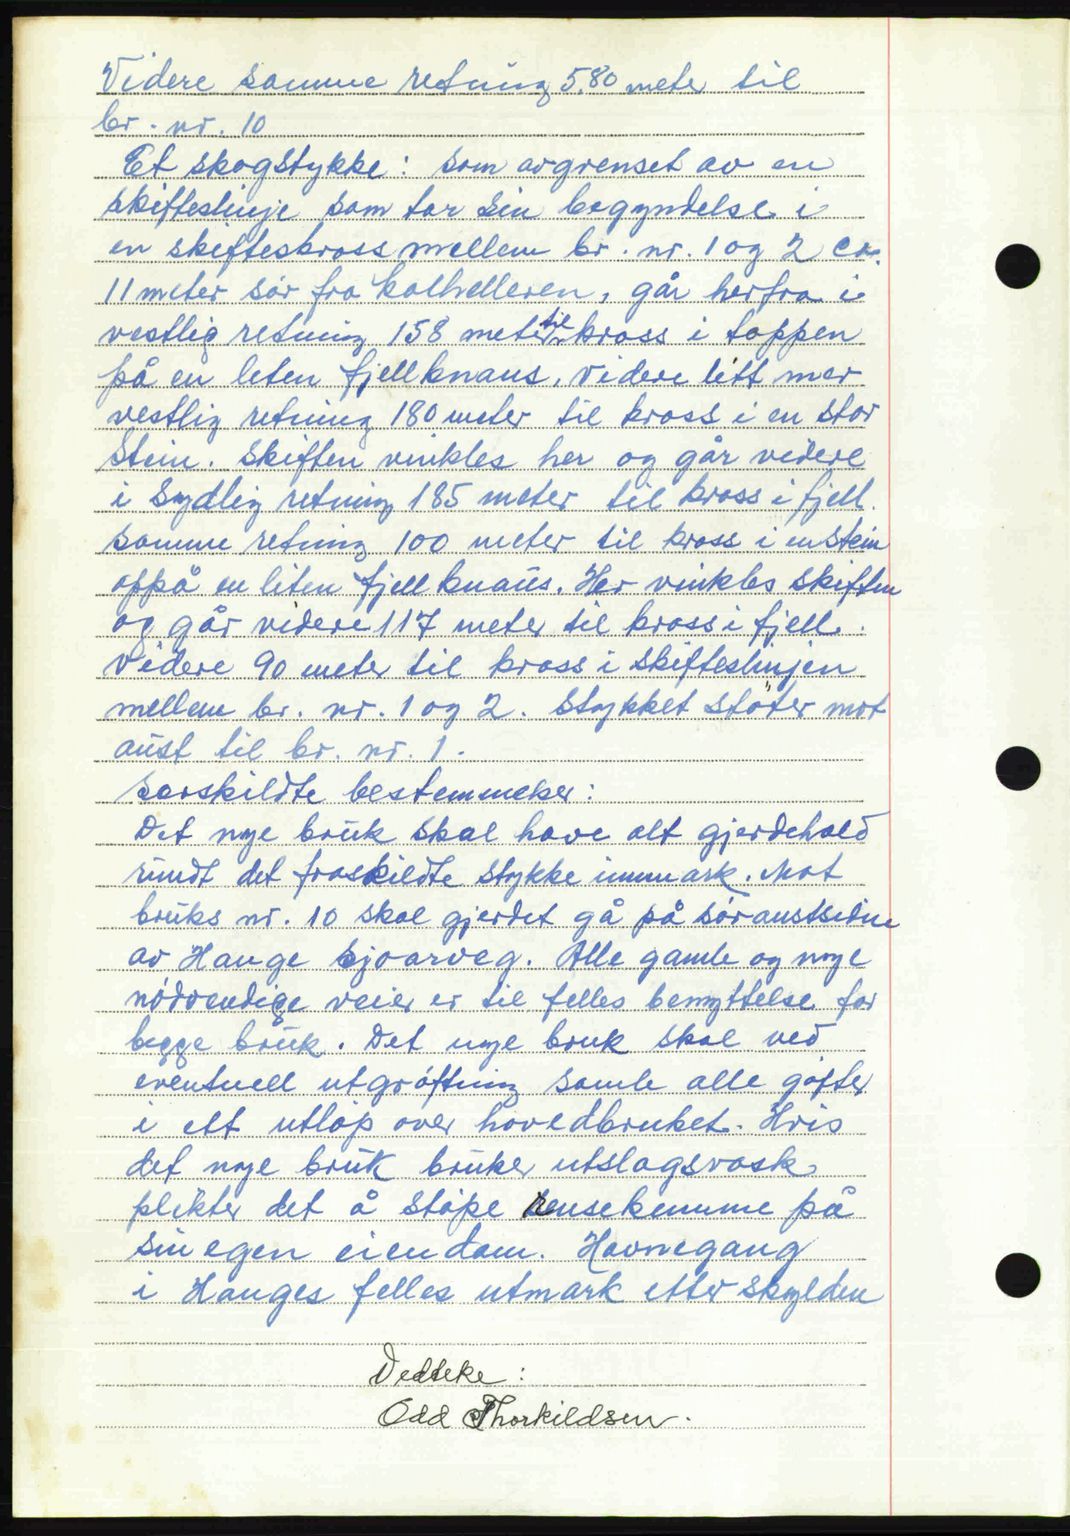 Videre samme retning 5,80 meter til
br. nr. 10
Et skogstykke: som avgrenset av en
skifteslinje som tar sin begyndelse i
en skifteskross mellem br. nr. 1 og 2 ca.
11 meter sør fra kolhelleren, går herfra i
vestlig retning 158 meter til kross i toppen
på en leten fjellknaus. Videre litt mer
vestlig retning 180 meter til kross i en stor
Stein. Skiften vinkles her og går videre
i sydlig retning 185 meter til kross i fjell.
samme retning 100 meter til kross i en stein
oppå en liten fjellknaus. Her vinkles skiften
og går videre 117 meter til kross i fjell.
Videre 90 meter til kross i skifteslinjen
mellem br. nr. 1 og 2. Stykket støter mot
aust til br. nr. 1.
Særskildte bestemmelser:
Det nye bruk skal have alt gjerdehold
rundt det fraskildte stykke innmark. Mot
bruks nr. 10 skal gjerdet gå på søraustsidne
av Hauge sjoarveg. Alle gamle og nye
nødvendige veier er til felles benyttelse for
begge bruk. Det nye bruk skal ved
eventuell utgrøftning samle alle gøfter
i ett utløp over hovedbruket. Hvis
det nye bruk bruker utslagsvask
plikter det å støpe rensekumme på
sin egen eiendom. Havnegang
i Hauges felles utmark etter skylden
Vedteke:
Odd Thorkildsen.